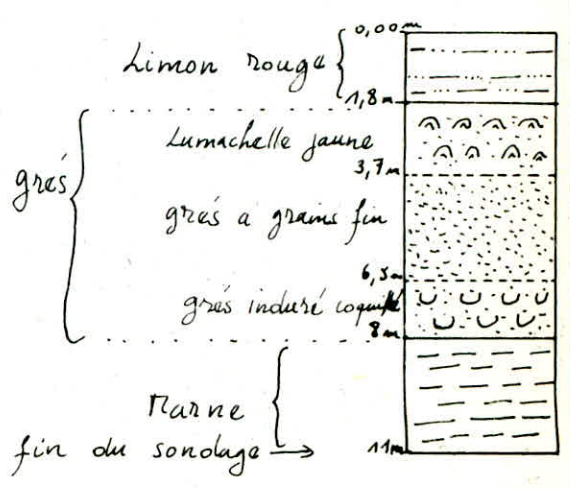 0,00m
Limon rouge
1,8m
Lumachelle jaune
3,7m
grés
grés a grains fin
6,5m
grés induré coquillé
8m
Marne
fin du sondage
11m